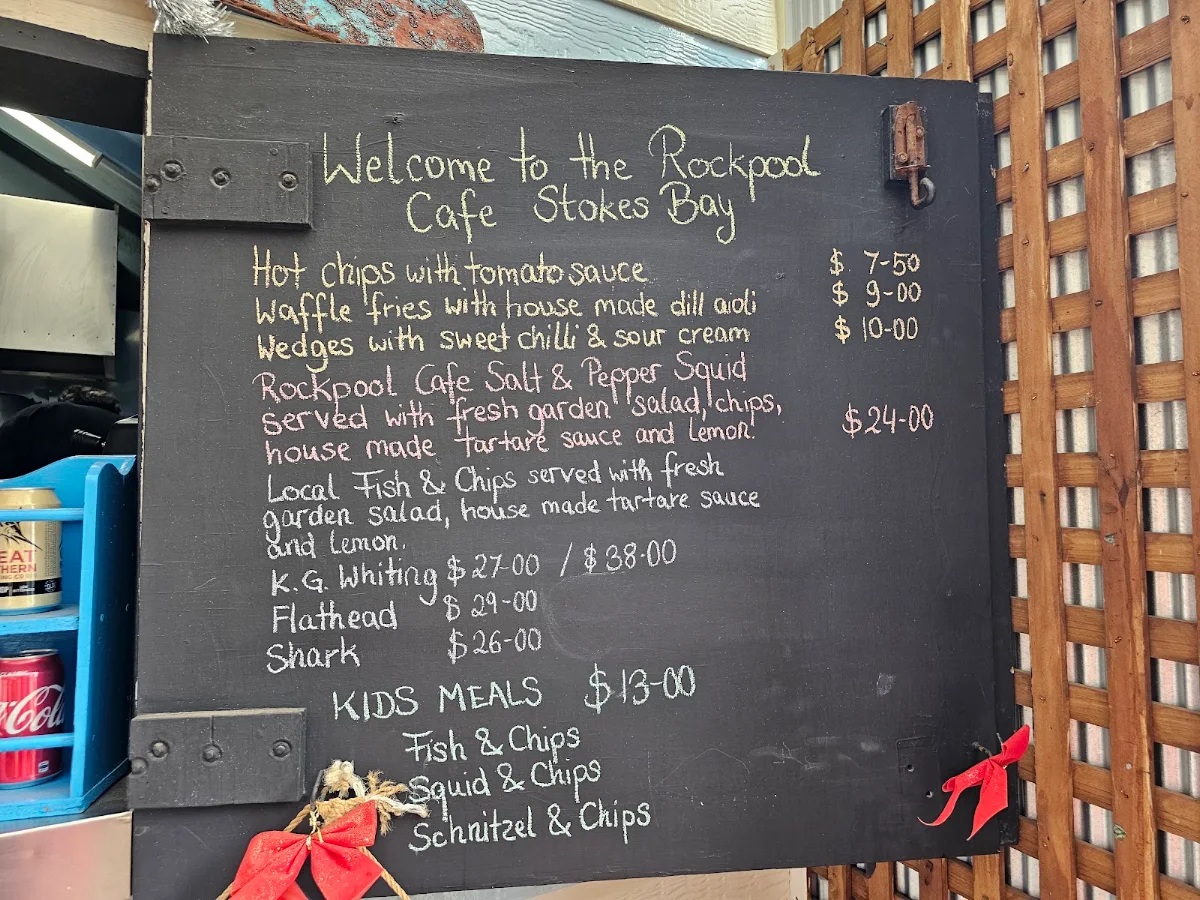 Welcome to the Rockpool
Cafe Stokes Bay
Hot chips with tomato sauce $ 7-50
Waffle fries with house made dill aioli $ 9-00
Wedges with sweet chilli & sour cream $ 10-00
Rockpool Cafe Salt & Pepper Squid
served with fresh garden salad, chips,
house made tartare sauce and lemon. $24-00
Local Fish & Chips served with fresh
garden salad, house made tartare sauce
and lemon.
K.G. Whiting $27-00 / $38-00
Flathead $ 29-00
Shark $26-00
KIDS MEALS $13-00
Fish & Chips
Squid & Chips
Schnitzel & Chips
EAT
HERN
Col